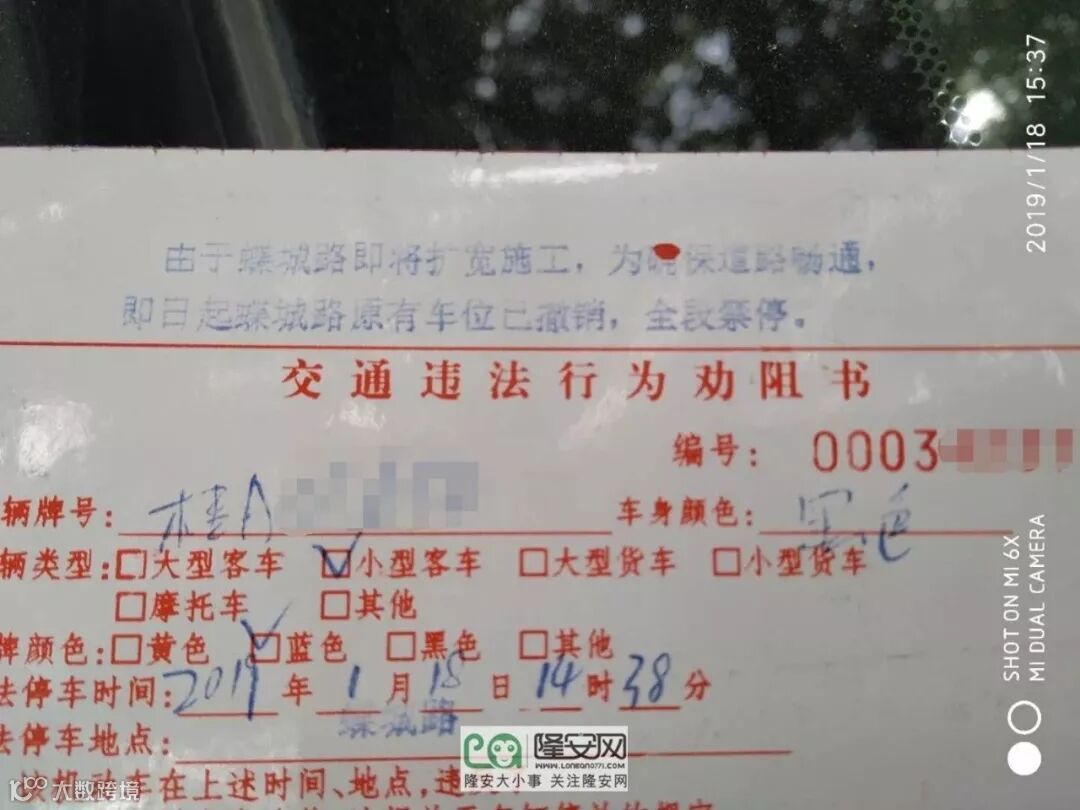 由于蝶城路即将扩宽施工，为确保道路畅通，
即日起蝶城路原有车位已撤销，全段禁停。
交通违法行为劝阻书
编号：0003
辆牌号：桂A 车身颜色：黑色
辆类型：□大型客车 ☑小型客车 □大型货车 □小型货车
□摩托车 □其他
牌颜色：□黄色 ☑蓝色 □黑色 □其他
法停车时间：2019年1月18日14时38分
法停车地点：蝶城路
机动车在上述时间、地点，违
隆安网
WWW.LONGAN0771.COM
隆安大小事 关注隆安网
大数跨境
2019/1/18 15:37
SHOT ON MI 6X
MI DUAL CAMERA